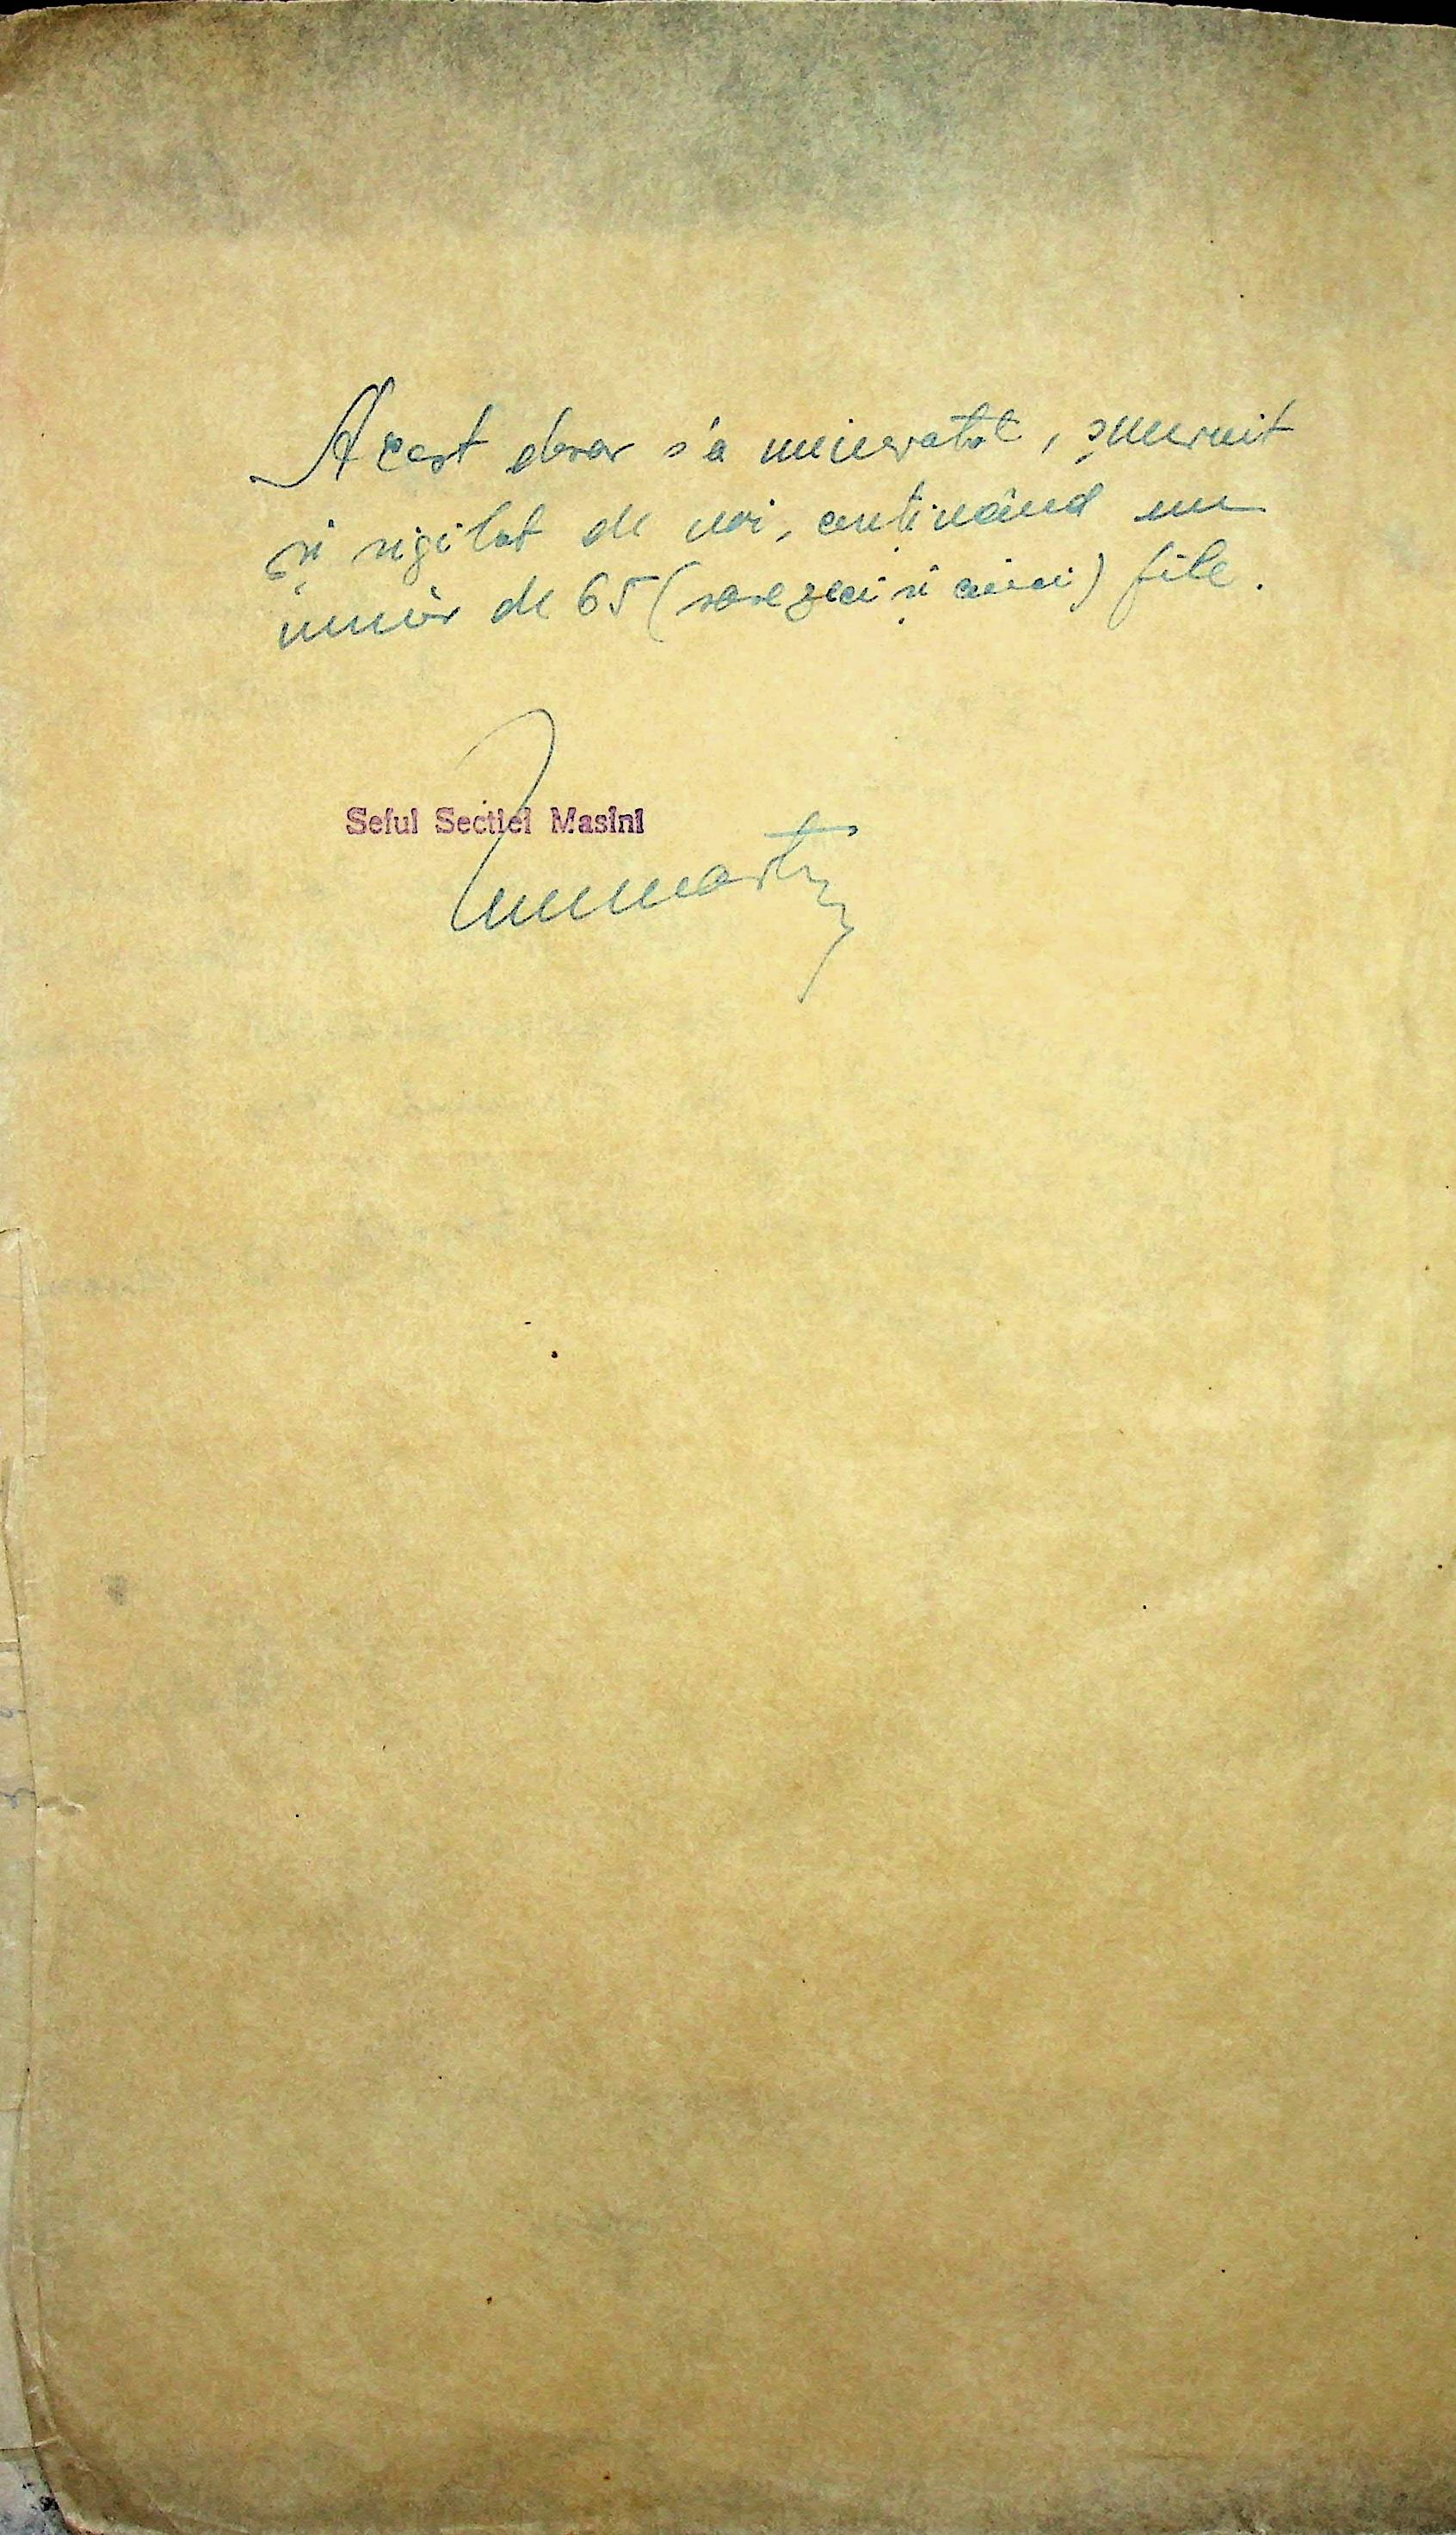 Acest dosar s'a numerotat, șnuruit
și sigilat de noi, conținând un
număr de 65 (șasezeci și cinci) file.
Seful Sectiei Masini